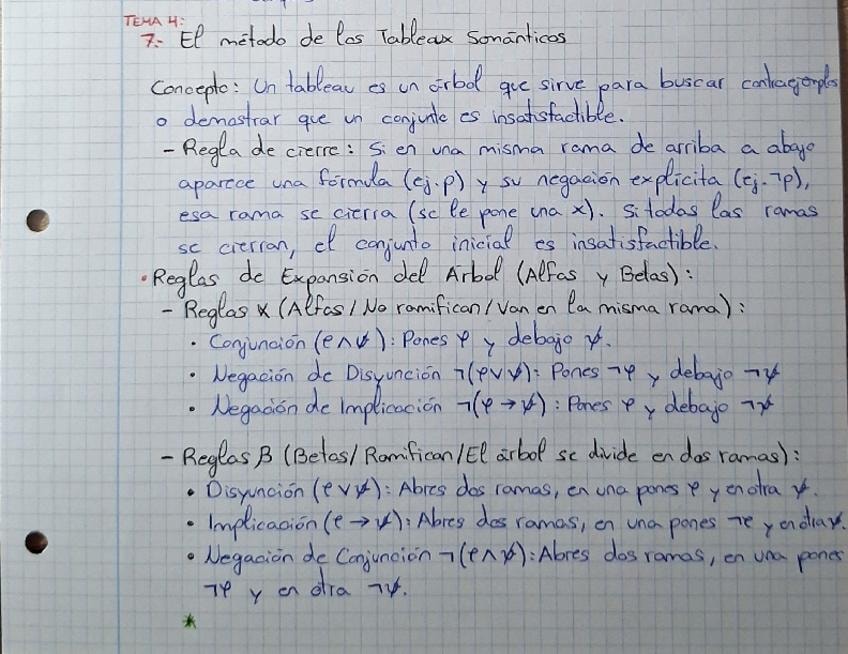 TEMA 4:
7.- El método de los Tableaux Semánticos
Concepto: Un tableau es un árbol que sirve para buscar contraejemplos
o demostrar que un conjunto es insatisfactible.
- Regla de cierre: Si en una misma rama de arriba a abajo
aparece una fórmula (ej. p) y su negación explícita (ej. ¬p),
esa rama se cierra (se le pone una x). Si todas las ramas
se cierran, el conjunto inicial es insatisfactible.
• Reglas de Expansión del Arbol (Alfas y Betas):
- Reglas α (Alfas / No ramifican / Van en la misma rama):
• Conjunción (φ ∧ ψ): Pones φ y debajo ψ.
• Negación de Disyunción ¬(φ ∨ ψ): Pones ¬φ y debajo ¬ψ
• Negación de Implicación ¬(φ → ψ): Pones φ y debajo ¬ψ
- Reglas β (Betas / Ramifican / El árbol se divide en dos ramas):
• Disyunción (φ ∨ ψ): Abres dos ramas, en una pones φ y en otra ψ.
• Implicación (φ → ψ): Abres dos ramas, en una pones ¬φ y en otra ψ.
• Negación de Conjunción ¬(φ ∧ ψ): Abres dos ramas, en una pones
¬φ y en otra ¬ψ.
*